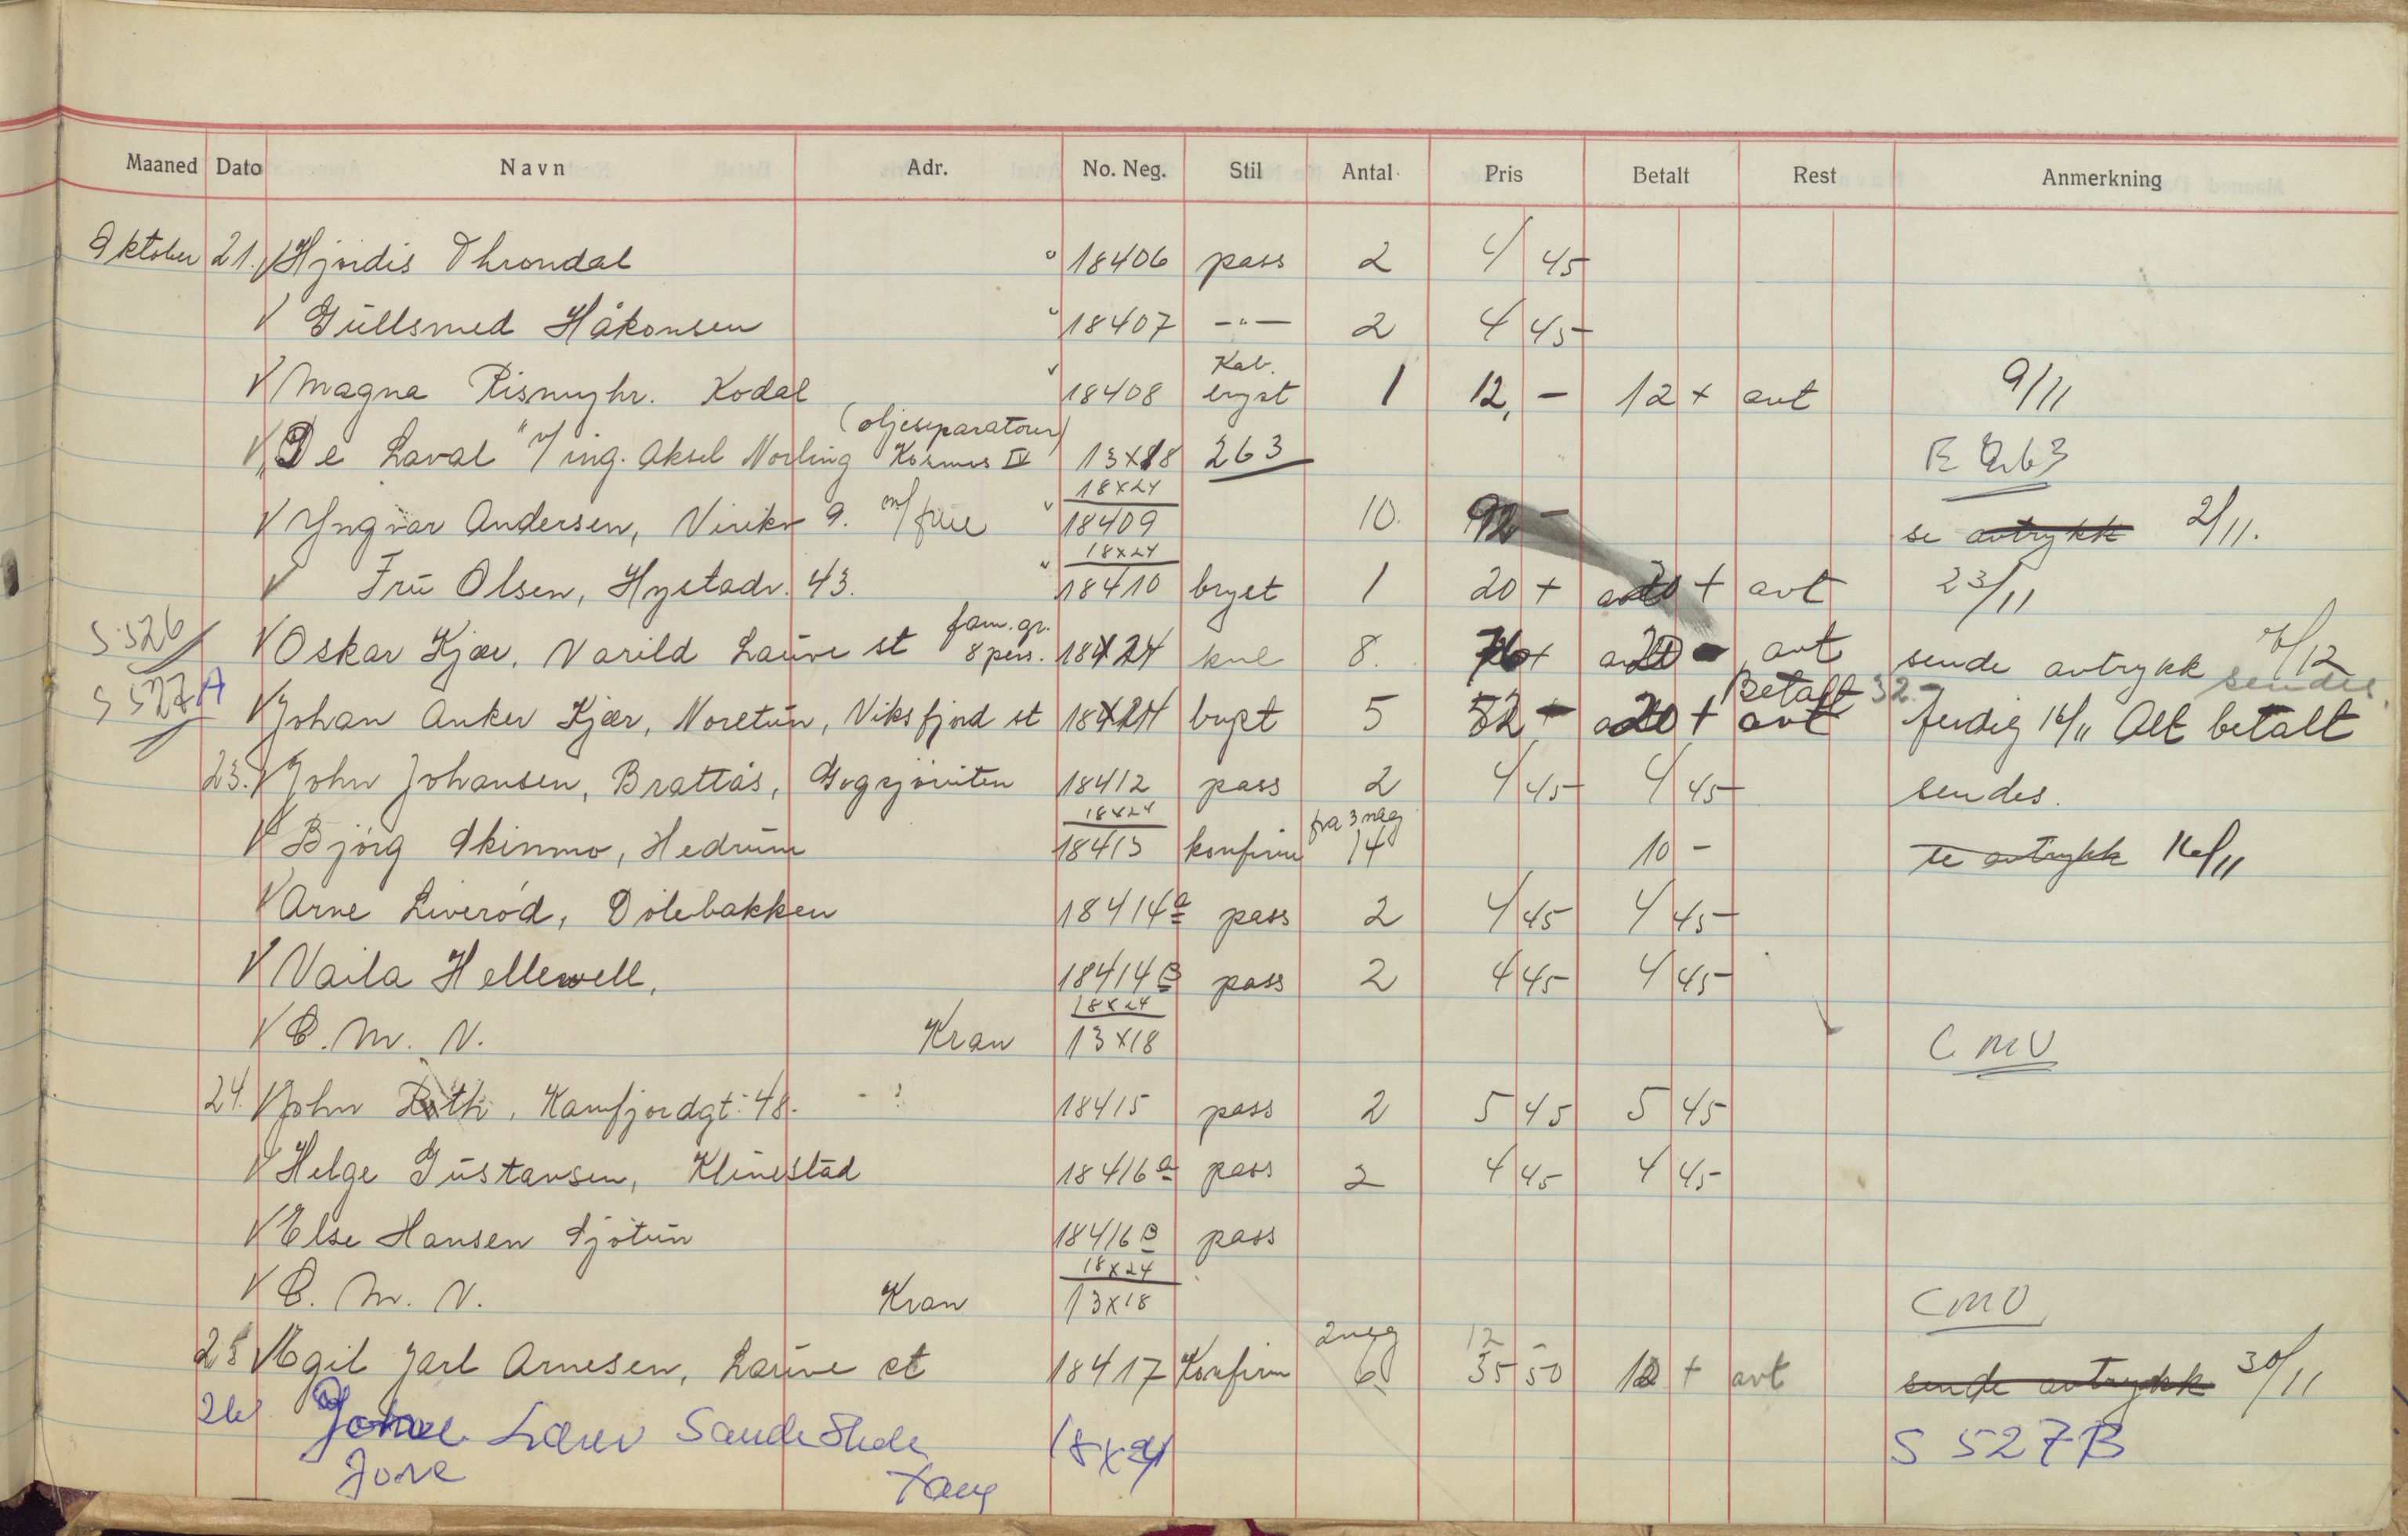 Maaned Dato Navn Adr. No. Neg. Stil Antal Pris Betalt Rest Anmerkning
Oktober 21. Hjördis Throndal " 18406 pass 2 4/45
Gullsmed Håkonsen " 18407 -"- 2 4/45
Magna Rismyhr. Kodal " 18408 Kab. bryst 1 12,- 12+ avt 9/11
"De Laval" v/ ing. Aksel Norling (oljeseparatorer) Kosmos IV 13x18 263 E 263
Yngvar Andersen, Virikv 9. m/frue " 18x24 18409 10. 92- se avtrykk 2/11.
Fru Olsen, Hystadv. 43. " 18x24 18410 bryst 1 20+ 20+ avt 23/11
S 526 Oskar Kjær, Varild Lauve st fam. gr. 8 pers. 18x24 kne 8. 76+ 20- avt sende avtrykk /12 sendes
S 527A Johan Anker Kjær, Noretun, Viksfjord st 18x24 bryst 5 52- 20+ avt Betalt 32- ferdig 14/11 Alt betalt
23. John Johansen, Brattås, Gogsjöruten 18412 pass 2 4/45 4/45 sendes.
Björg Skinmo, Hedrum 18x24 18413 konfirm fra 3 neg 14 10- se avtrykk 16/11
Arne Liveröd, Dölebakken 18414a pass 2 4/45 4/45
Vaila Hellewell, 18414B pass 2 4/45 4/45
C. M. V. Kran 18x24 13x18 CMV
24. John Roth, Kamfjordgt. 48. 18415 pass 2 5 45 5 45
Helge Gustavsen, Klinestad 18416a pass 2 4 45 4 45
Else Hansen Sjötun 18416B pass
C. M. V. Kran 18x24 13x18 CMV
25 Egil Jarl Arnesen, Lauve st 18417 Konfirm 2 neg 6 12- 35 50 12+ avt sende avtrykk 30/11
26 Lærer Sande 18x24 S 527B
Tang